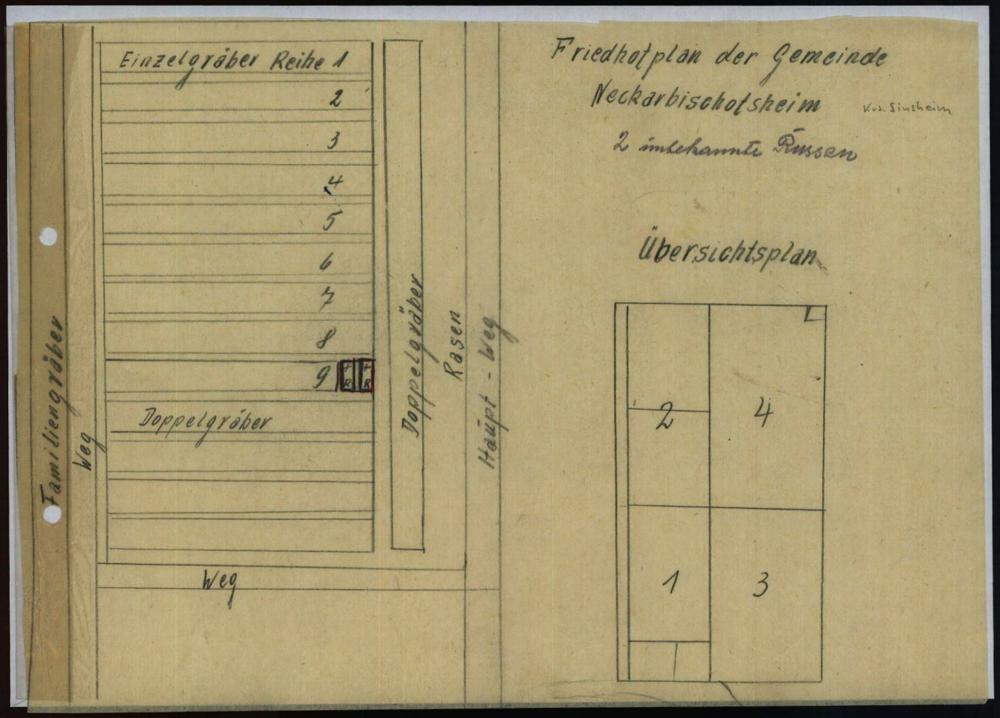 Friedhofplan der Gemeinde
Neckarbischofsheim
Krs. Sinsheim
2 unbekannte Russen
Übersichtsplan
2
4
1
3
Einzelgräber Reihe 1
2
3
4
5
6
7
8
9
Doppelgräber
Doppelgräber
Rasen
Haupt - Weg
Familiengräber
Weg
Weg